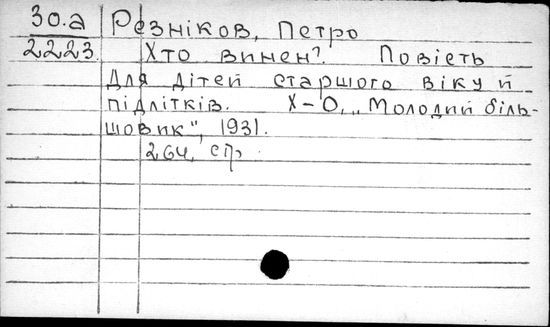 30.а Резніков, Петро
2223 Хто винен? Повість
для дітей старшого віку й
підлітків. Х-О, „Молодий біль-
шовик", 1931.
264, стр.